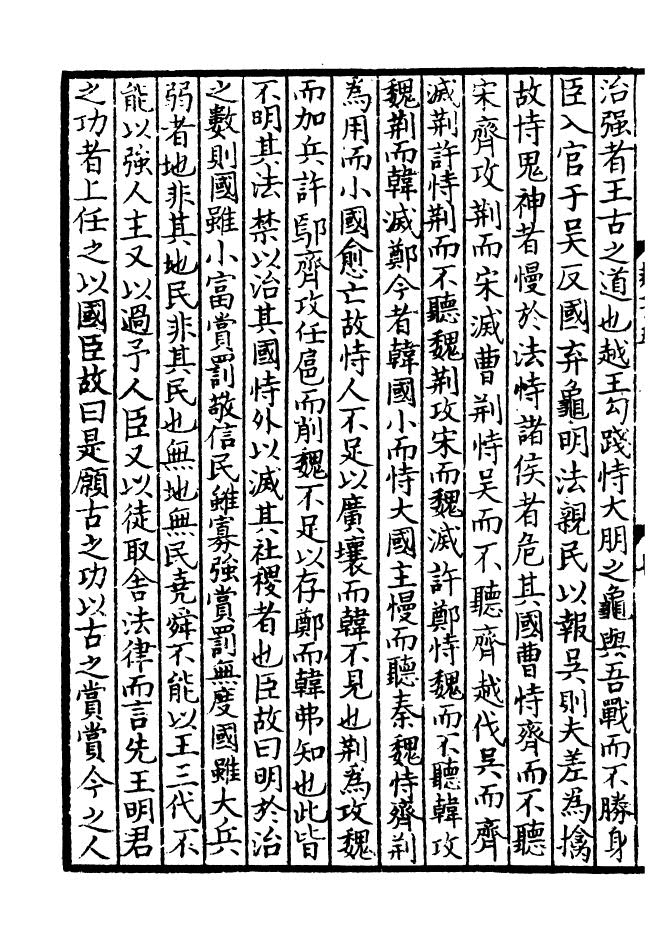 治强者王古之道也越王勾踐恃大朋之龜與吾戰而不勝身
臣入官于吴反國弃龜明法親民以報吴則夫差為擒
故恃鬼神者慢於法恃諸侯者危其國曹恃齊而不聽
宋齊攻荆而宋滅曹荆恃吴而不聽齊越伐吴而齊
滅荆許恃荆而不聽魏荆攻宋而魏滅許鄭恃魏而不聽韓攻
魏荆而韓滅鄭今者韓國小而恃大國主慢而聽秦魏恃齊荆
為用而小國愈亡故恃人不足以廣壤而韓不見也荆為攻魏
而加兵許鄢齊攻任扈而削魏不足以存鄭而韓弗知也此皆
不明其法禁以治其國恃外以滅其社稷者也臣故曰明於治
之數則國雖小富賞罰敬信民雖寡強賞罰無度國雖大兵
弱者地非其地民非其民也無地無民堯舜不能以王三代不
能以強人主又以過予人臣又以徒取舍法律而言先王明君
之功者上任之以國臣故曰是願古之功以古之賞賞今之人